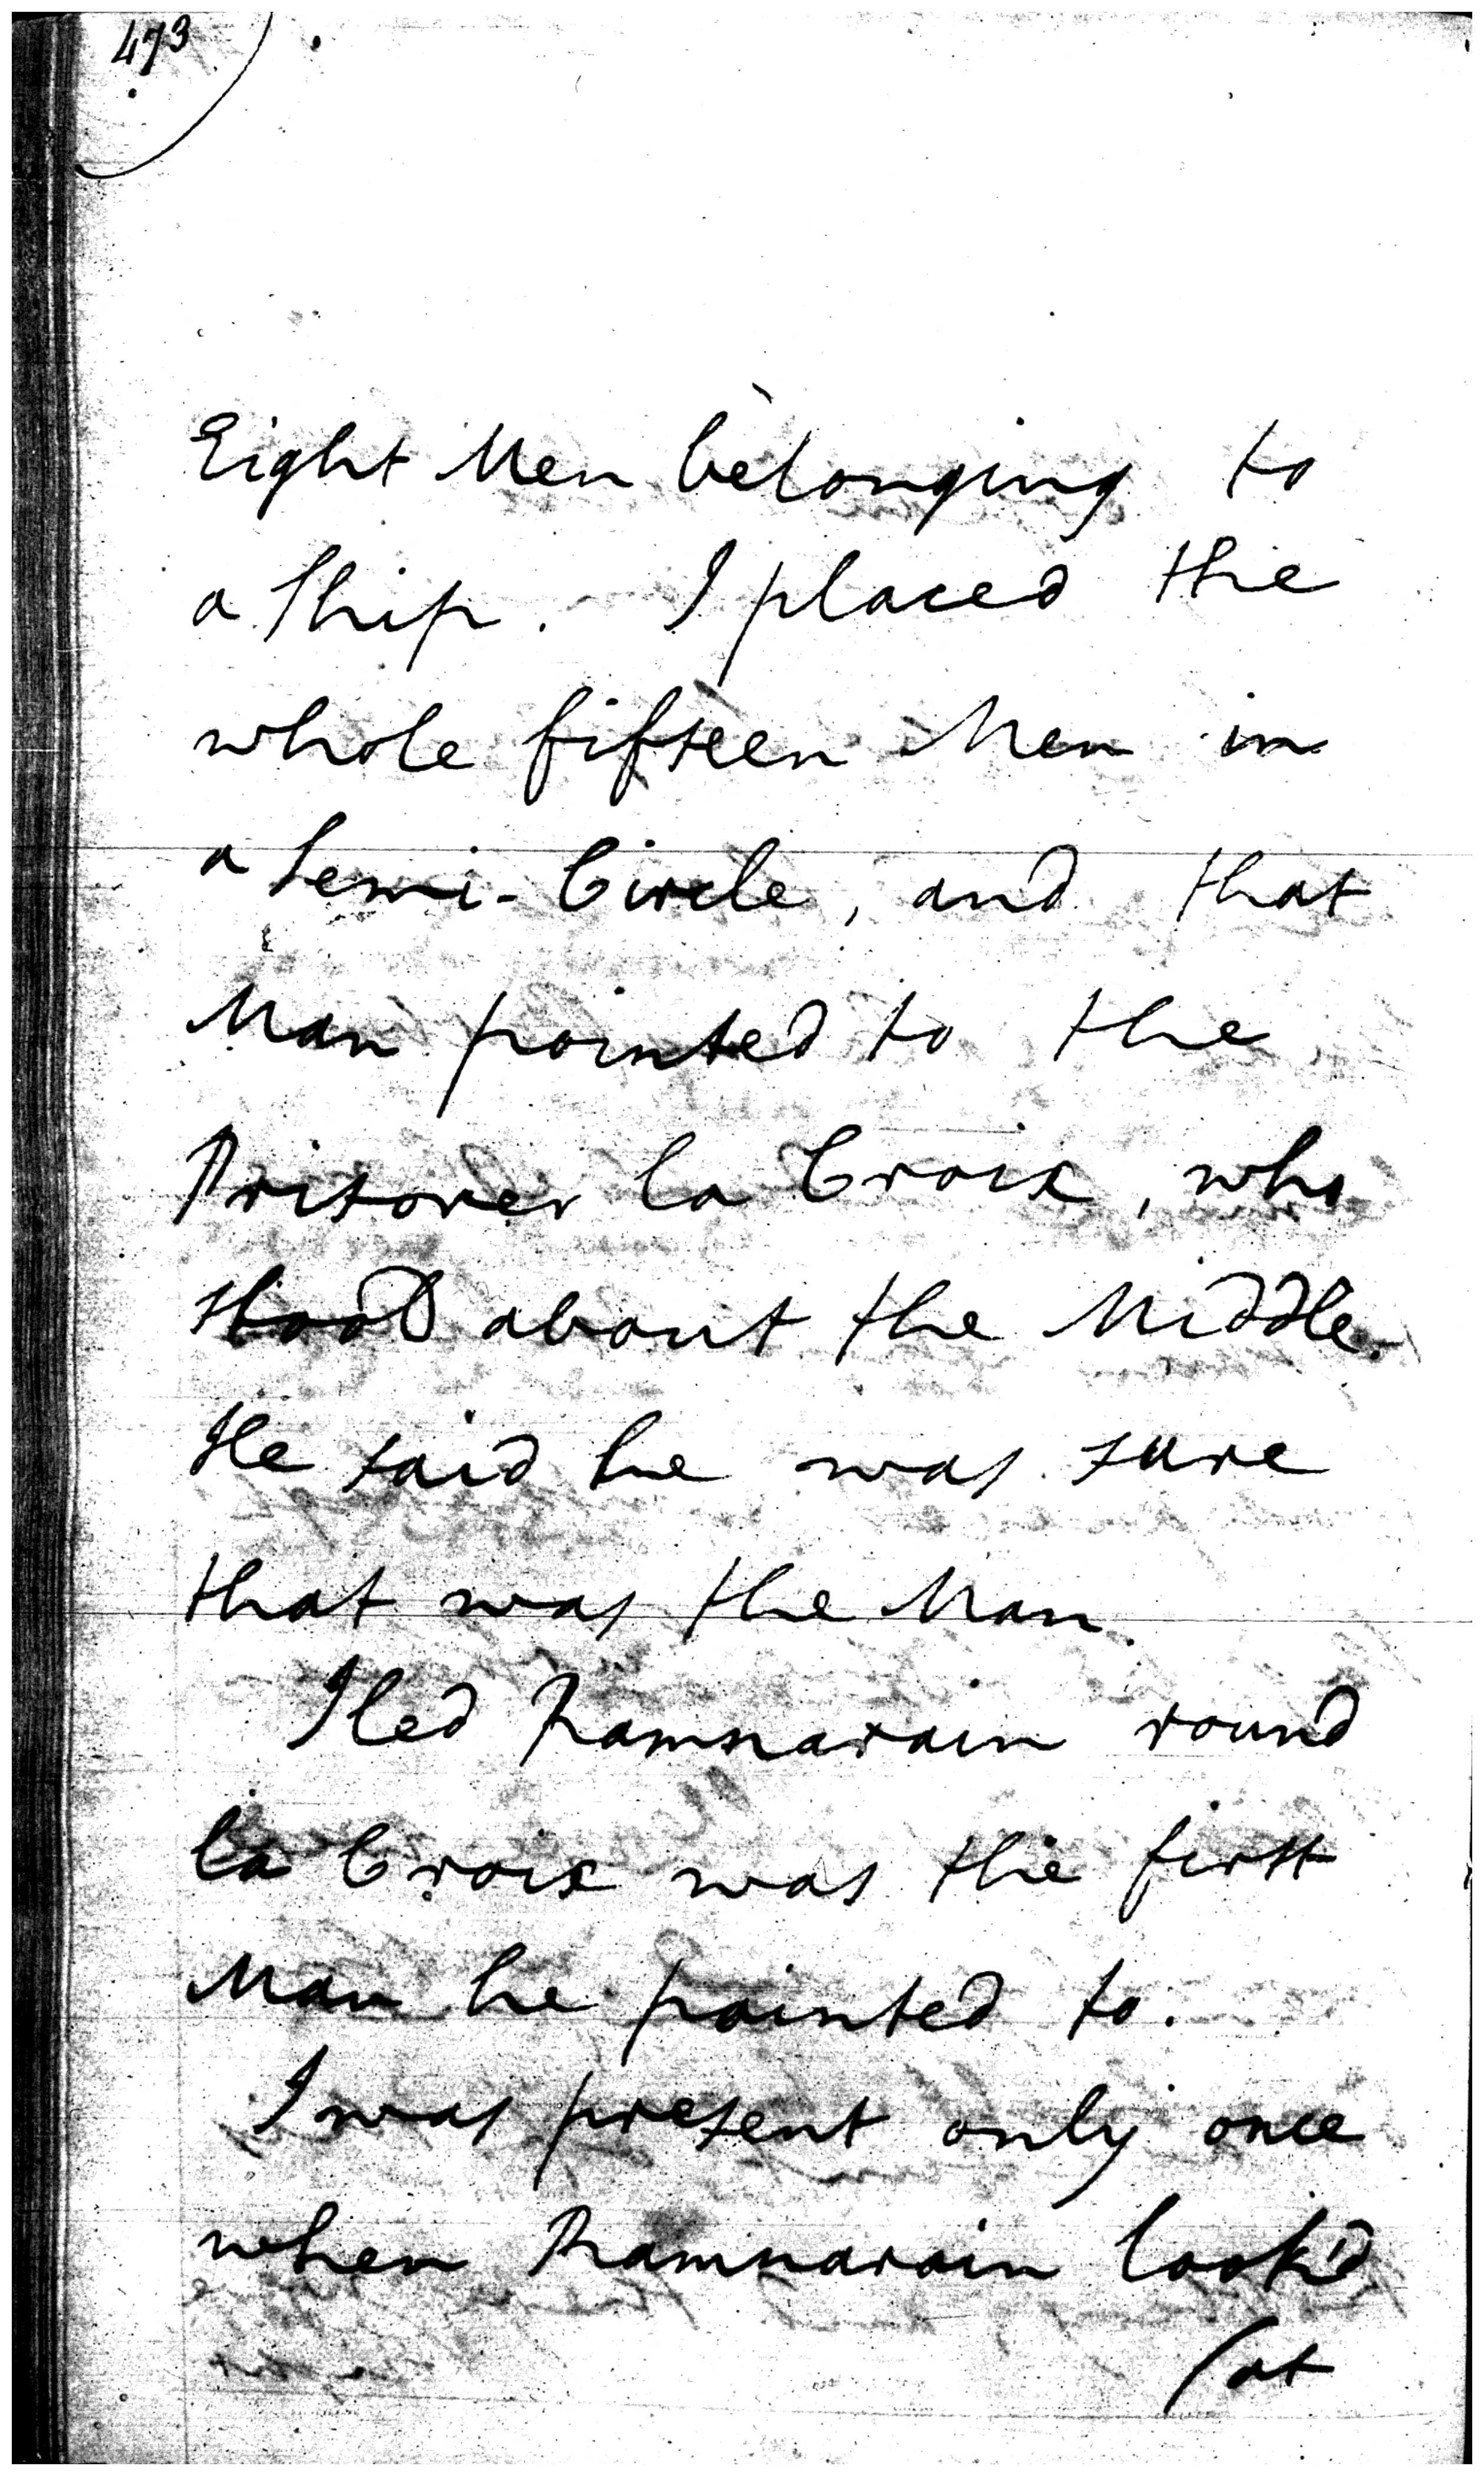 473
Eight Men belonging to
a Ship. I placed the
whole fifteen Men in
a Semi-Circle, and that
Man pointed to the
Prisoner la Croix, who
stood about the Middle.
He said he was sure
that was the Man.
I led Ramnarain round
la Croix was the first
Man he pointed to.
I was present only once
when Ramnarain look'd
(at